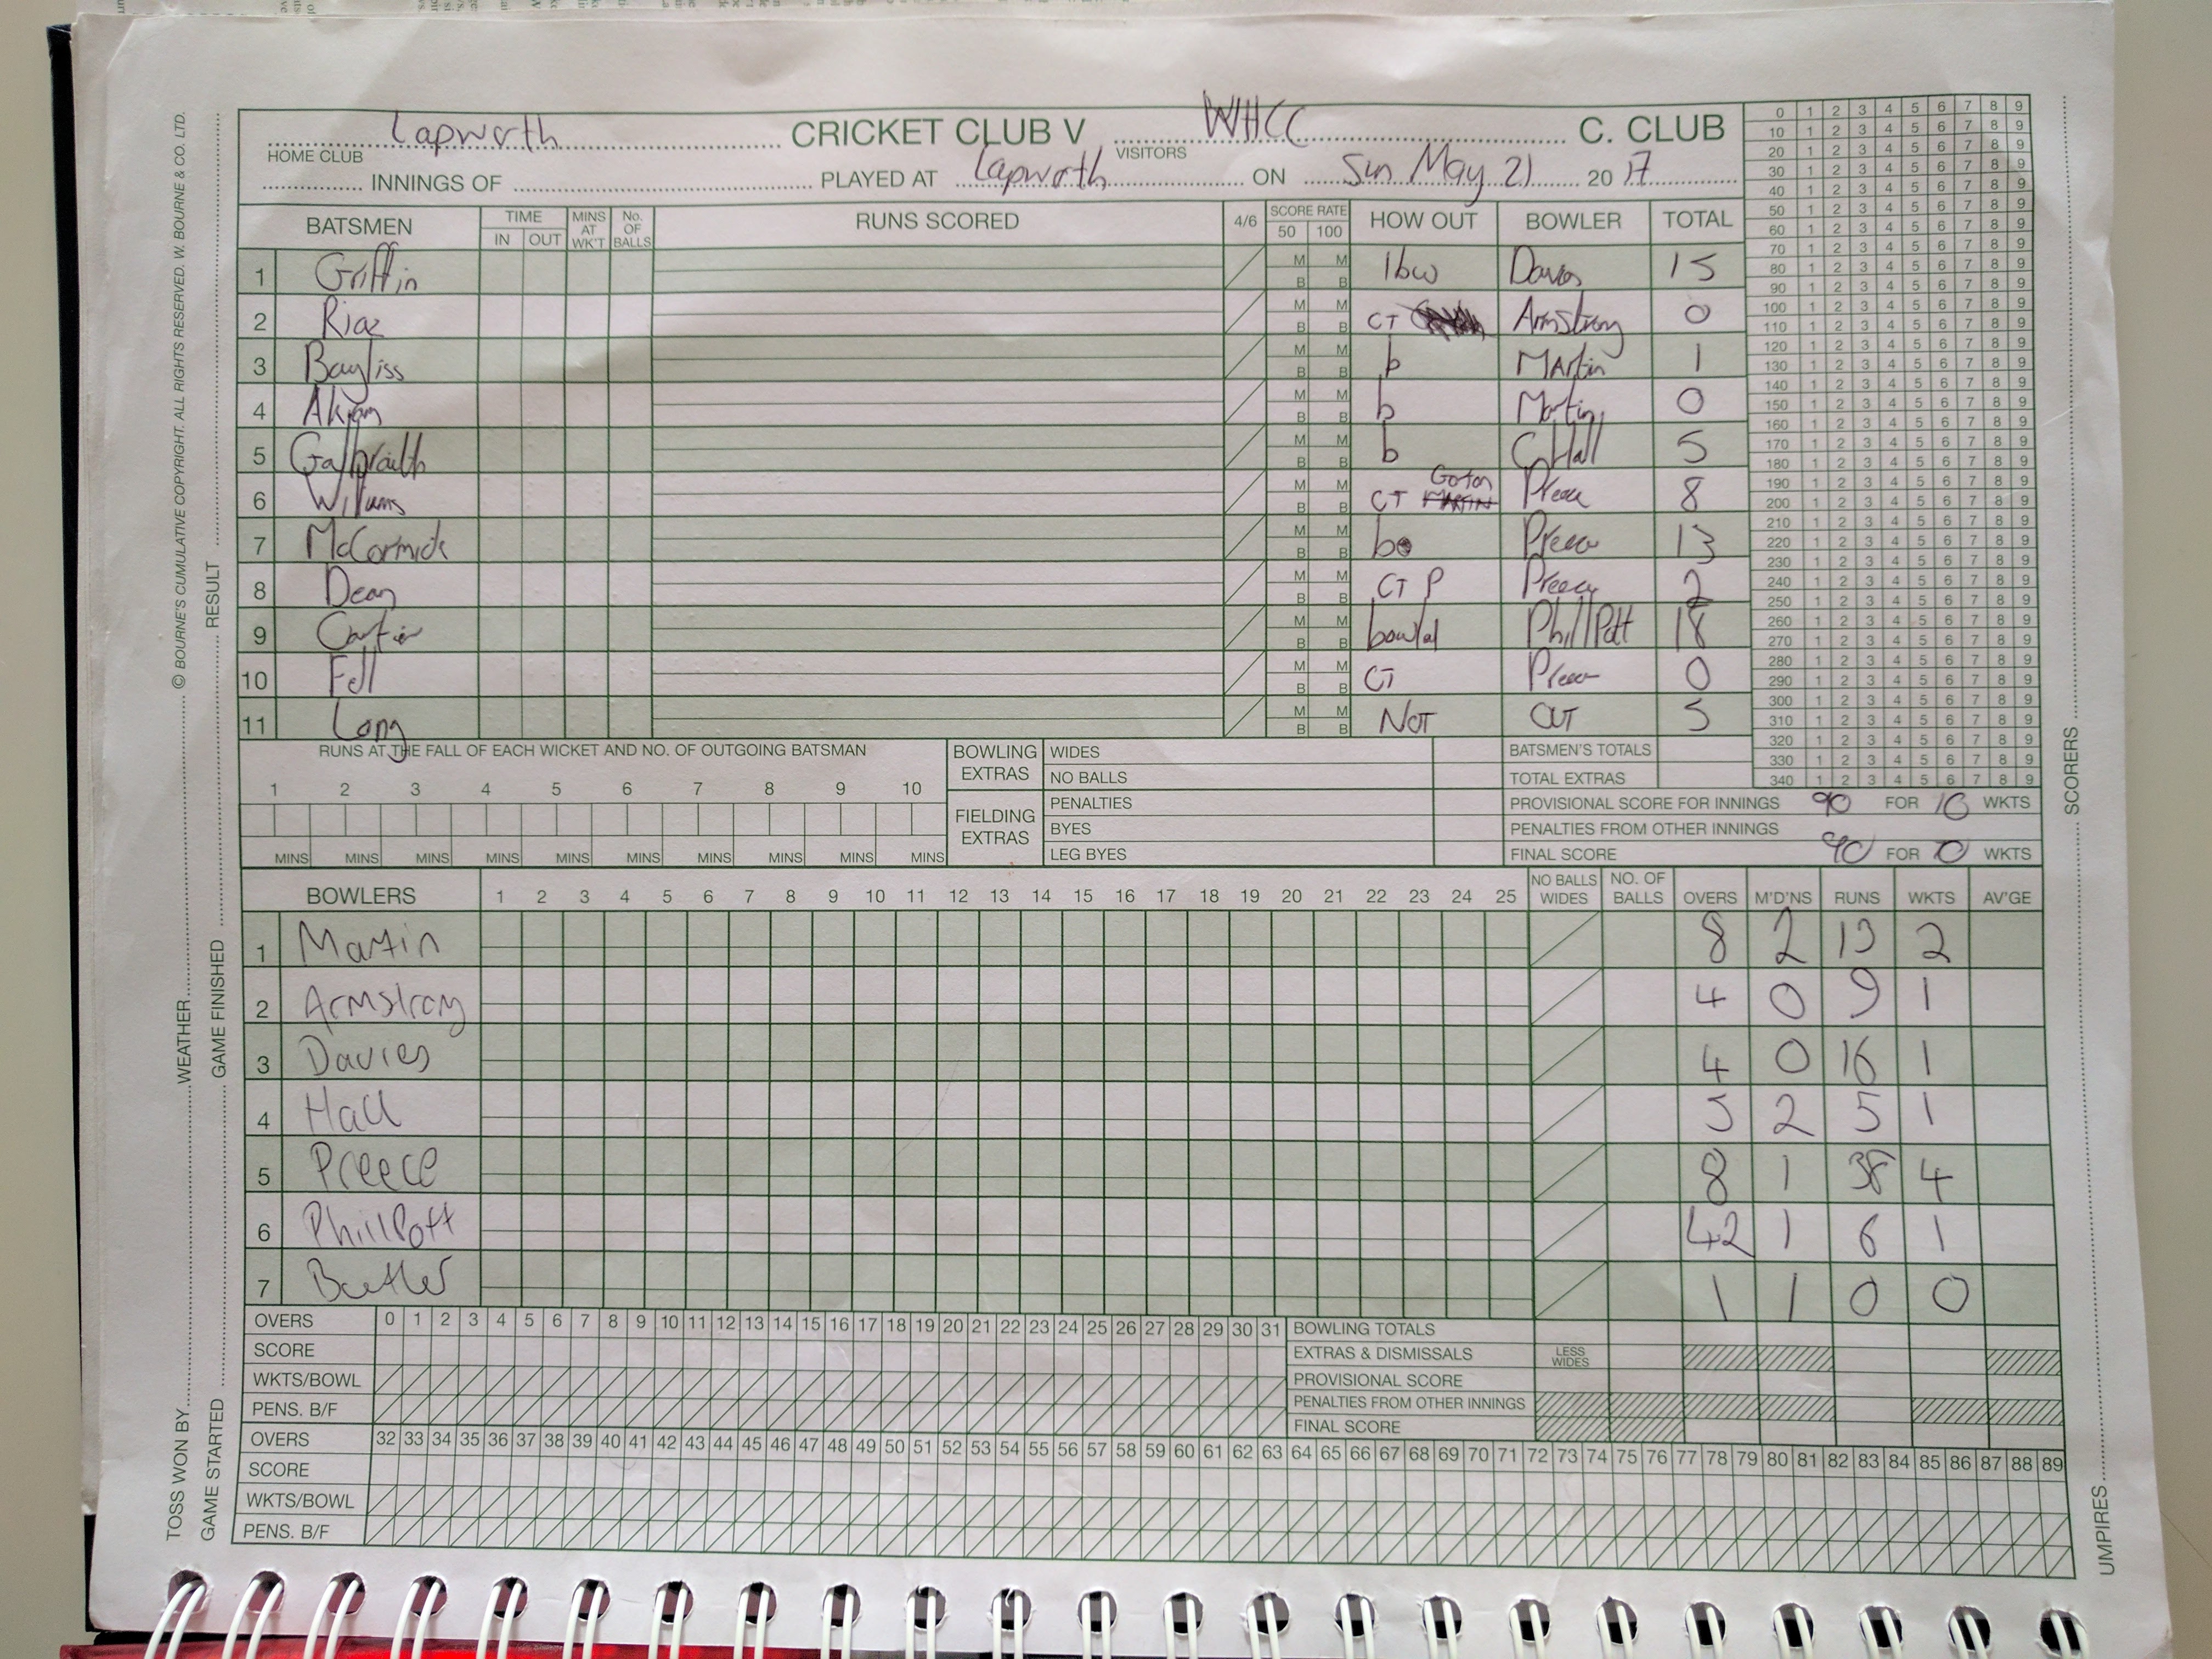 Lapworth CRICKET CLUB V WHCC C. CLUB
HOME CLUB VISITORS
INNINGS OF PLAYED AT Lapworth ON Sun May 21 20 17
BATSMEN TIME IN OUT MINS AT WK'T No. OF BALLS RUNS SCORED 4/6 SCORE RATE 50 100 HOW OUT BOWLER TOTAL
1 Griffin M M B B lbw Davies 15
2 Riaz M M B B CT Armstrong 0
3 Bayliss M M B B b Martin 1
4 Akram M M B B b Martin 0
5 Galbraith M M B B b C Hall 5
6 Williams M M B B CT Preece 8
7 McCormick M M B B b Preece 13
8 Dean M M B B CT P Preece 2
9 M M B B bowled PhillPott 18
10 Fell M M B B CT Preece 0
11 Long M M B B NOT OUT 5
RUNS AT THE FALL OF EACH WICKET AND NO. OF OUTGOING BATSMAN
1 2 3 4 5 6 7 8 9 10
MINS MINS MINS MINS MINS MINS MINS MINS MINS MINS
BOWLING EXTRAS
WIDES
NO BALLS
FIELDING EXTRAS
PENALTIES
BYES
LEG BYES
BATSMEN'S TOTALS
TOTAL EXTRAS
PROVISIONAL SCORE FOR INNINGS 90 FOR 10 WKTS
PENALTIES FROM OTHER INNINGS
FINAL SCORE 90 FOR 10 WKTS
0 1 2 3 4 5 6 7 8 9
10 1 2 3 4 5 6 7 8 9
20 1 2 3 4 5 6 7 8 9
30 1 2 3 4 5 6 7 8 9
40 1 2 3 4 5 6 7 8 9
50 1 2 3 4 5 6 7 8 9
60 1 2 3 4 5 6 7 8 9
70 1 2 3 4 5 6 7 8 9
80 1 2 3 4 5 6 7 8 9
90 1 2 3 4 5 6 7 8 9
100 1 2 3 4 5 6 7 8 9
110 1 2 3 4 5 6 7 8 9
120 1 2 3 4 5 6 7 8 9
130 1 2 3 4 5 6 7 8 9
140 1 2 3 4 5 6 7 8 9
150 1 2 3 4 5 6 7 8 9
160 1 2 3 4 5 6 7 8 9
170 1 2 3 4 5 6 7 8 9
180 1 2 3 4 5 6 7 8 9
190 1 2 3 4 5 6 7 8 9
200 1 2 3 4 5 6 7 8 9
210 1 2 3 4 5 6 7 8 9
220 1 2 3 4 5 6 7 8 9
230 1 2 3 4 5 6 7 8 9
240 1 2 3 4 5 6 7 8 9
250 1 2 3 4 5 6 7 8 9
260 1 2 3 4 5 6 7 8 9
270 1 2 3 4 5 6 7 8 9
280 1 2 3 4 5 6 7 8 9
290 1 2 3 4 5 6 7 8 9
300 1 2 3 4 5 6 7 8 9
310 1 2 3 4 5 6 7 8 9
320 1 2 3 4 5 6 7 8 9
330 1 2 3 4 5 6 7 8 9
340 1 2 3 4 5 6 7 8 9
BOWLERS 1 2 3 4 5 6 7 8 9 10 11 12 13 14 15 16 17 18 19 20 21 22 23 24 25 NO BALLS WIDES NO. OF BALLS OVERS M'D'NS RUNS WKTS AV'GE
1 Martin 8 2 13 2
2 Armstrong 4 0 9 1
3 Davies 4 0 16 1
4 Hall 5 2 5 1
5 Preece 8 1 38 4
6 PhillPott 42 1 6 1
7 Butler 1 1 0 0
OVERS 0 1 2 3 4 5 6 7 8 9 10 11 12 13 14 15 16 17 18 19 20 21 22 23 24 25 26 27 28 29 30 31
SCORE
WKTS/BOWL
PENS. B/F
BOWLING TOTALS
EXTRAS & DISMISSALS LESS WIDES
PROVISIONAL SCORE
PENALTIES FROM OTHER INNINGS
FINAL SCORE
OVERS 32 33 34 35 36 37 38 39 40 41 42 43 44 45 46 47 48 49 50 51 52 53 54 55 56 57 58 59 60 61 62 63 64 65 66 67 68 69 70 71 72 73 74 75 76 77 78 79 80 81 82 83 84 85 86 87 88 89
SCORE
WKTS/BOWL
PENS. B/F
TOSS WON BY WEATHER © BOURNE'S CUMULATIVE COPYRIGHT. ALL RIGHTS RESERVED. W. BOURNE & CO. LTD.
GAME STARTED GAME FINISHED RESULT
UMPIRES SCORERS